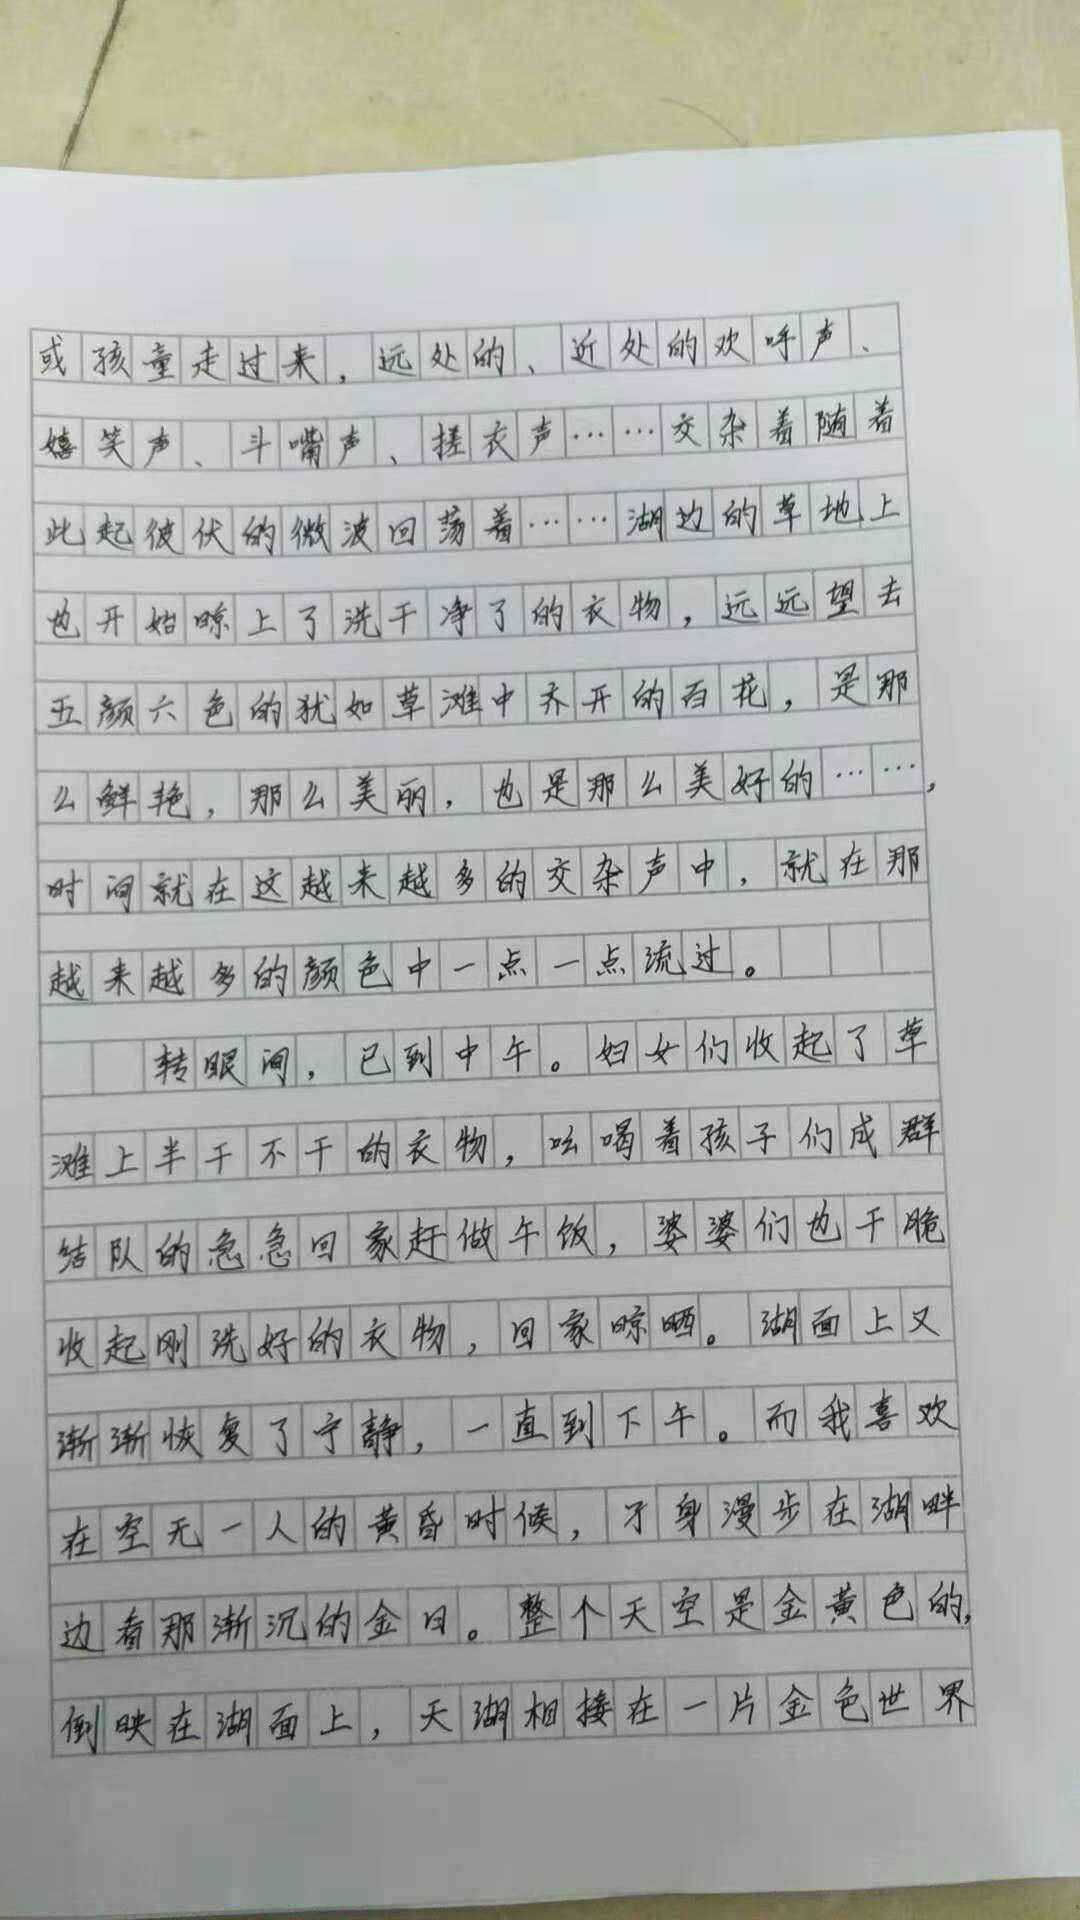 或孩童走过来，远处的、近处的欢呼声、
嬉笑声、斗嘴声、搓衣声……交杂着随着
此起彼伏的微波回荡着……湖边的草地上
也开始晾上了洗干净了的衣物，远远望去
五颜六色的犹如草滩中齐开的百花，是那
么鲜艳，那么美丽，也是那么美好的……，
时间就在这越来越多的交杂声中，就在那
越来越多的颜色中一点一点流过。
转眼间，已到中午。妇女们收起了草
滩上半干不干的衣物，吆喝着孩子们成群
结队的急急回家赶做午饭，婆婆们也干脆
收起刚洗好的衣物，回家晾晒。湖面上又
渐渐恢复了宁静，一直到下午。而我喜欢
在空无一人的黄昏时候，孑身漫步在湖畔
边看那渐沉的金日。整个天空是金黄色的，
倒映在湖面上，天湖相接在一片金色世界